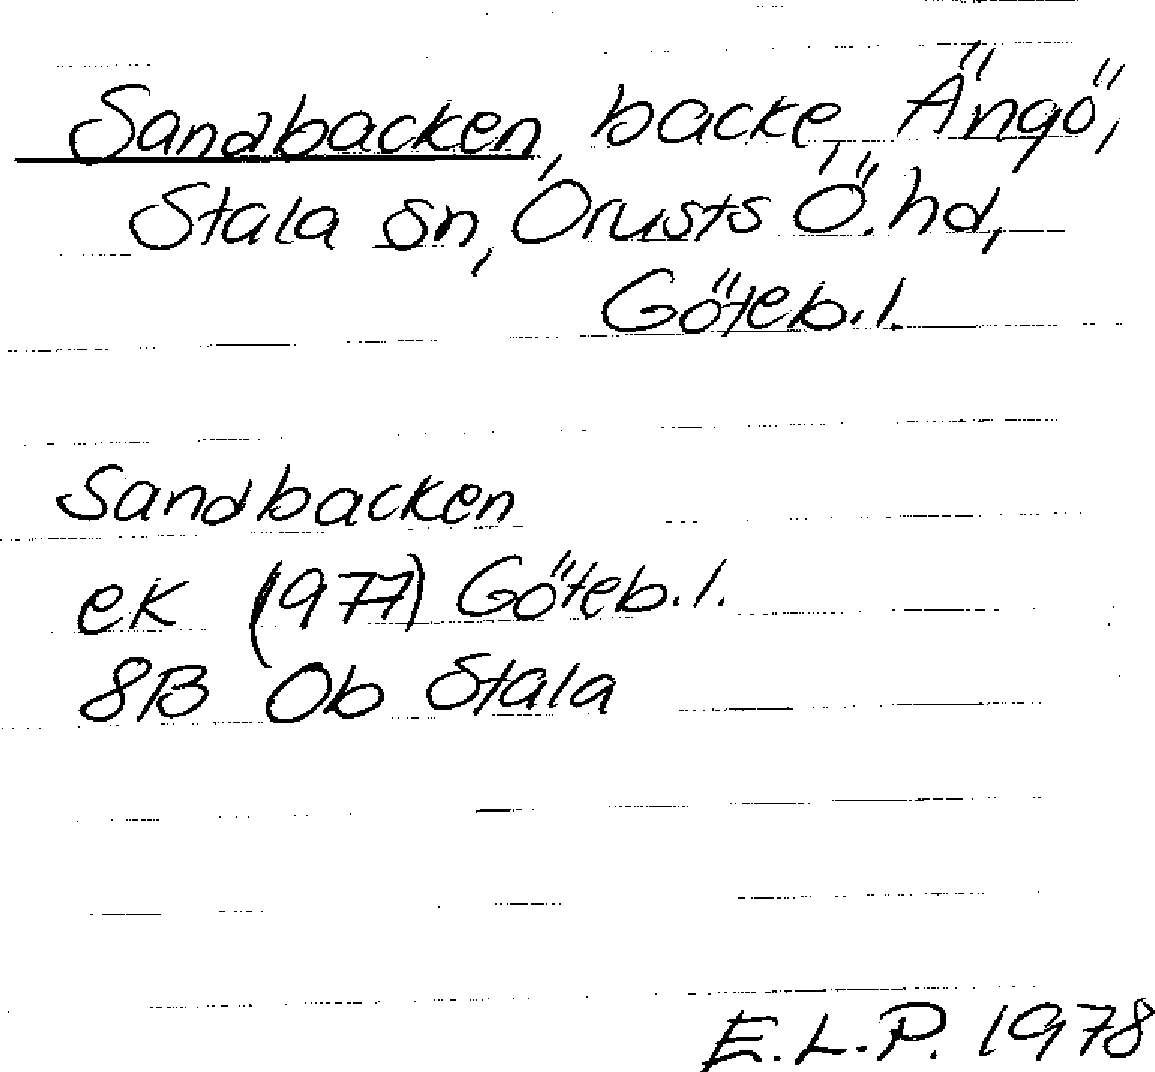 Sandbacken, backe, Ängö,
Stala sn, Orusts Ö. hd,
Göteb. l.
Sandbacken
ek (1977) Göteb. l.
8B 0b Stala
E. L. P. 1978